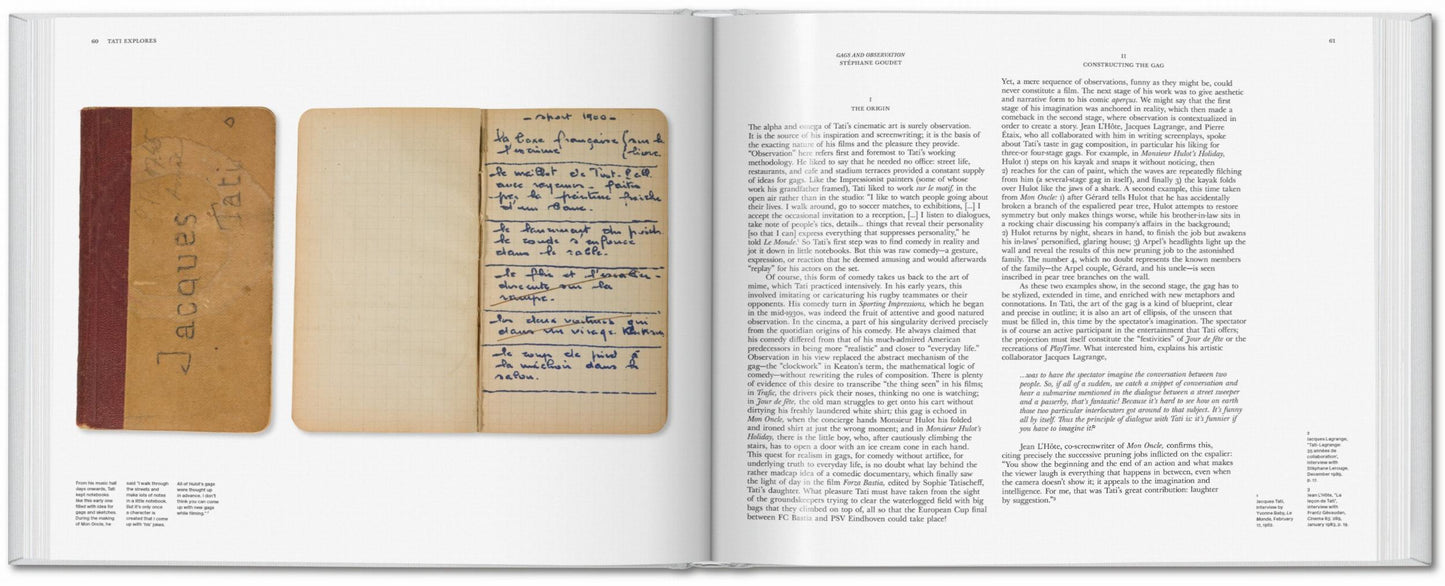 60 TATI EXPLORES
Jacques
Tati
- sport 1900 -
la boxe française (sur le
l'escrime (livre
le maillot de
avec rayures - faites
par la peinture fraîche
d'un banc.
le lancement du poids
le coude s'enfonce
dans le sable.
le flic et l'escalier
descente sur la
rampe.
les deux voitures qui
dans un virage
le coup de pied à
la mâchoire dans le
salon.
From his music hall
days onwards, Tati
kept notebooks
like this early one
filled with idea for
gags and sketches.
During the making
of Mon Oncle, he
said "I walk through
the streets and
make lots of notes
in a little notebook.
But it's only once
a character is
created that I come
up with 'his' jokes.
All of Hulot's gags
were thought up
in advance. I don't
think you can come
up with new gags
while filming."²
61
GAGS AND OBSERVATION
STÉPHANE GOUDET
I
THE ORIGIN
The alpha and omega of Tati's cinematic art is surely observation.
It is the source of his inspiration and screenwriting; it is the basis of
the exacting nature of his films and the pleasure they provide.
"Observation" here refers first and foremost to Tati's working
methodology. He liked to say that he needed no office: street life,
restaurants, and cafe and stadium terraces provided a constant supply
of ideas for gags. Like the Impressionist painters (some of whose
work his grandfather framed), Tati liked to work sur le motif, in the
open air rather than in the studio: "I like to watch people going about
their lives. I walk around, go to soccer matches, to exhibitions, [...] I
accept the occasional invitation to a reception, [...] I listen to dialogues,
take note of people's tics, details... things that reveal their personality
[so that I can] express everything that suppresses personality," he
told Le Monde.¹ So Tati's first step was to find comedy in reality and
jot it down in little notebooks. But this was raw comedy—a gesture,
expression, or reaction that he deemed amusing and would afterwards
"replay" for his actors on the set.
Of course, this form of comedy takes us back to the art of
mime, which Tati practiced intensively. In his early years, this
involved imitating or caricaturing his rugby teammates or their
opponents. His comedy turn in Sporting Impressions, which he began
in the mid-1930s, was indeed the fruit of attentive and good natured
observation. In the cinema, a part of his singularity derived precisely
from the quotidian origins of his comedy. He always claimed that
his comedy differed from that of his much-admired American
predecessors in being more "realistic" and closer to "everyday life."
Observation in his view replaced the abstract mechanism of the
gag—the "clockwork" in Keaton's term, the mathematical logic of
comedy—without rewriting the rules of composition. There is plenty
of evidence of this desire to transcribe "the thing seen" in his films;
in Trafic, the drivers pick their noses, thinking no one is watching;
in Jour de fête, the old man struggles to get onto his cart without
dirtying his freshly laundered white shirt; this gag is echoed in
Mon Oncle, when the concierge hands Monsieur Hulot his folded
and ironed shirt at just the wrong moment; and in Monsieur Hulot's
Holiday, there is the little boy, who, after cautiously climbing the
stairs, has to open a door with an ice cream cone in each hand.
This quest for realism in gags, for comedy without artifice, for
underlying truth to everyday life, is no doubt what lay behind the
rather madcap idea of a comedic documentary, which finally saw
the light of day in the film Forza Bastia, edited by Sophie Tatischeff,
Tati's daughter. What pleasure Tati must have taken from the sight
of the groundskeepers trying to clear the waterlogged field with big
bags that they climbed on top of, all so that the European Cup final
between FC Bastia and PSV Eindhoven could take place!
II
CONSTRUCTING THE GAG
Yet, a mere sequence of observations, funny as they might be, could
never constitute a film. The next stage of his work was to give aesthetic
and narrative form to his comic aperçus. We might say that the first
stage of his imagination was anchored in reality, which then made a
comeback in the second stage, where observation is contextualized in
order to create a story. Jean L'Hôte, Jacques Lagrange, and Pierre
Étaix, who all collaborated with him in writing screenplays, spoke
about Tati's taste in gag composition, in particular his liking for
three-or four-stage gags. For example, in Monsieur Hulot's Holiday,
Hulot 1) steps on his kayak and snaps it without noticing, then
2) reaches for the can of paint, which the waves are repeatedly filching
from him (a several-stage gag in itself), and finally 3) the kayak folds
over Hulot like the jaws of a shark. A second example, this time taken
from Mon Oncle: 1) after Gérard tells Hulot that he has accidentally
broken a branch of the espaliered pear tree, Hulot attempts to restore
symmetry but only makes things worse, while his brother-in-law sits in
a rocking chair discussing his company's affairs in the background;
2) Hulot returns by night, shears in hand, to finish the job but awakens
his in-laws' personified, glaring house; 3) Arpel's headlights light up the
wall and reveal the results of this new pruning job to the astonished
family. The number 4, which no doubt represents the known members
of the family—the Arpel couple, Gérard, and his uncle—is seen
inscribed in pear tree branches on the wall.
As these two examples show, in the second stage, the gag has to
be stylized, extended in time, and enriched with new metaphors and
connotations. In Tati, the art of the gag is a kind of blueprint, clear
and precise in outline; it is also an art of ellipsis, of the unseen that
must be filled in, this time by the spectator's imagination. The spectator
is of course an active participant in the entertainment that Tati offers;
the projection must itself constitute the "festivities" of Jour de fête or the
recreations of PlayTime. What interested him, explains his artistic
collaborator Jacques Lagrange,
...was to have the spectator imagine the conversation between two
people. So, if all of a sudden, we catch a snippet of conversation and
hear a submarine mentioned in the dialogue between a street sweeper
and a passerby, that's fantastic! Because it's hard to see how on earth
those two particular interlocutors got around to that subject. It's funny
all by itself. Thus the principle of dialogue with Tati is: it's funnier if
you have to imagine it!²
Jean L'Hôte, co-screenwriter of Mon Oncle, confirms this,
citing precisely the successive pruning jobs inflicted on the espalier:
"You show the beginning and the end of an action and what makes
the viewer laugh is everything that happens in between, even when
the camera doesn't show it; it appeals to the imagination and
intelligence. For me, that was Tati's great contribution: laughter
by suggestion."³
1
Jacques Tati,
interview by
Yvonne Baby, Le
Monde, February
17, 1962.
2
Jacques Lagrange,
"Tati-Lagrange:
35 années de
collaboration",
interview with
Stéphane Lerouge,
December 1989,
p. 11.
3
Jean L'Hôte, "La
leçon de Tati",
interview with
Frantz Gévaudan,
Cinéma 83, 289,
January 1983, p. 19.